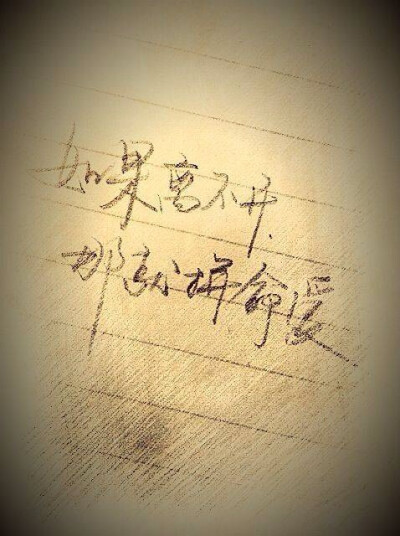 如果离不开.
那就拼命爱